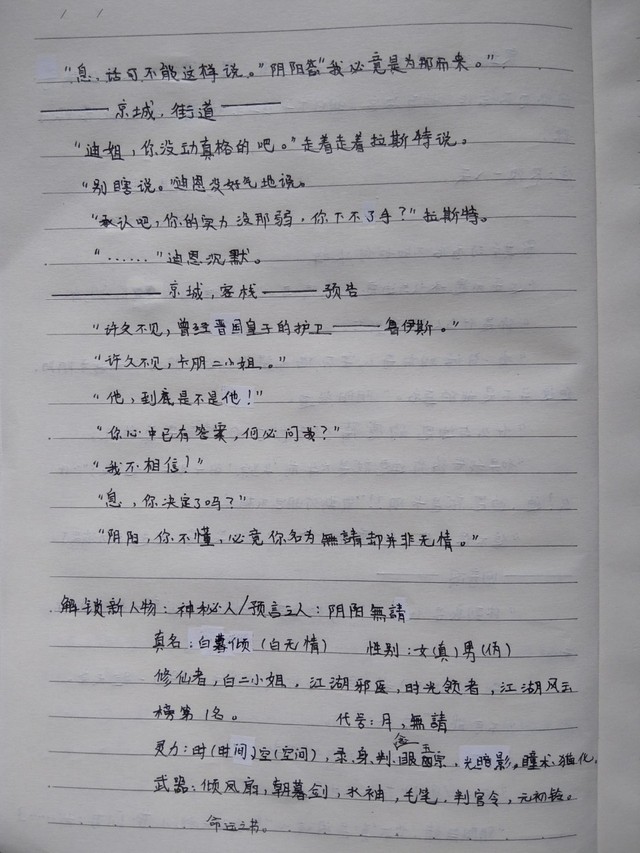 "息，话可不能这样说。"阴阳答"我必竟是为那而来。"
——— 京城，街道 ———
"迪姐，你没动真格的吧。"走着走着拉斯特说。
"别瞎说。"迪恩没好气地说。
"承认吧，你的实力没那弱，你下不了手？"拉斯特。
"……"迪恩沉默。
——— 京城，客栈 ——— 预告
"许久不见，曾经晋国皇子的护卫——鲁伊斯。"
"许久不见，卡朋二小姐。"
"他，到底是不是他！"
"你心中已有答案，何必问我？"
"我不相信！"
"息，你决定了吗？"
"阴阳，你不懂，必竟你名为無請却并非无情。"
解锁新人物：神秘人/预言之人：阴阳無請
真名：白暮倾（白无情） 性别：女（真）男（伪）
修仙者，白二小姐，江湖邪医，时光领者，江湖风云
榜第1名。 代号：月，無請
灵力：时（时间）空（空间），柔、身、判、眼、五、光暗影，瞳术、猫化，
武器：倾风扇，朝暮剑，水袖，毛笔，判官令，元初铃。
命运之书。